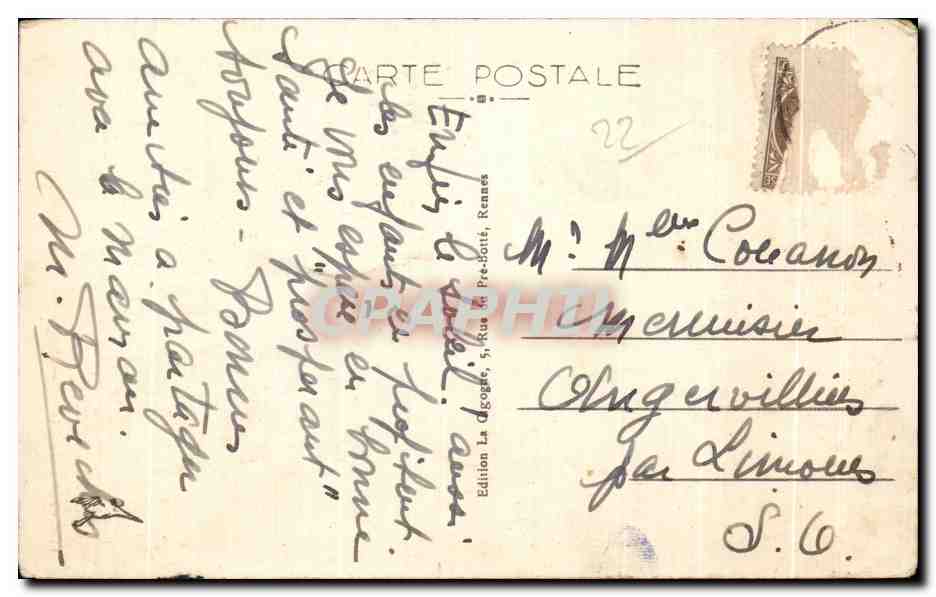 CARTE POSTALE
Enfin le soleil ! aussi
les enfants en profitent
Je vous espère en bonne
santé et "prospérant"
toujours - Bonnes
amitiés à partager
avec la maman
M.
Edition La Cigogne, 5, Rue du Pré-Botté, Rennes
22
Mr Mme Couanon
Menuisier
Angervilliers
par Limours
S. O.
CPAPHIL